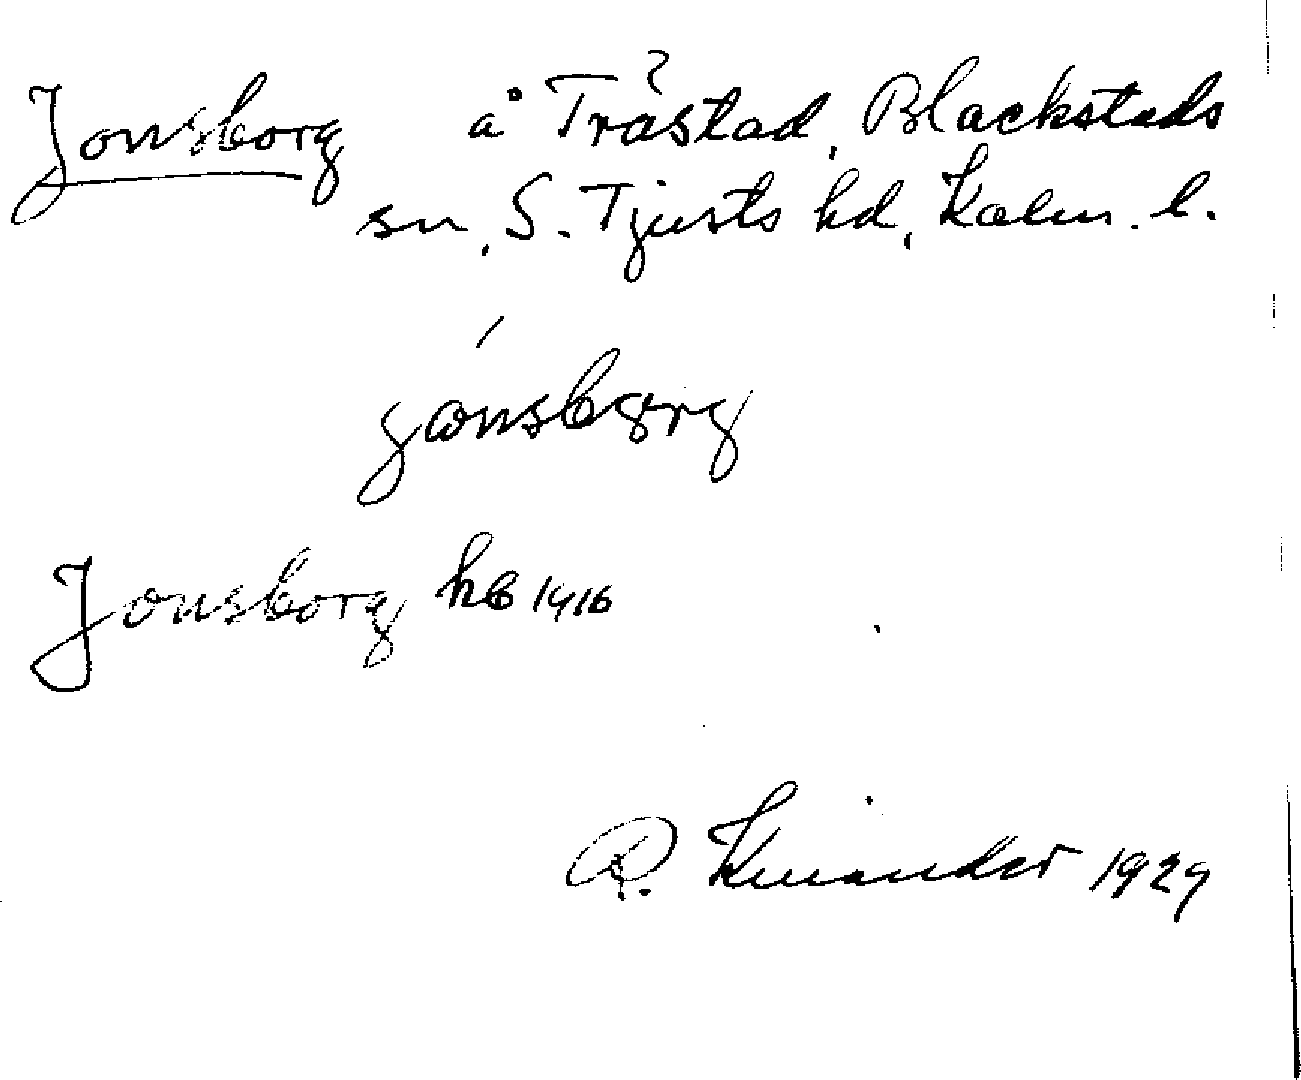 Jonsborg å Tråstad, Blackstads
sn, S. Tjusts hd, Kalm. l.
jónsborg
Jonsborg hb 1916
R. Kinander 1929